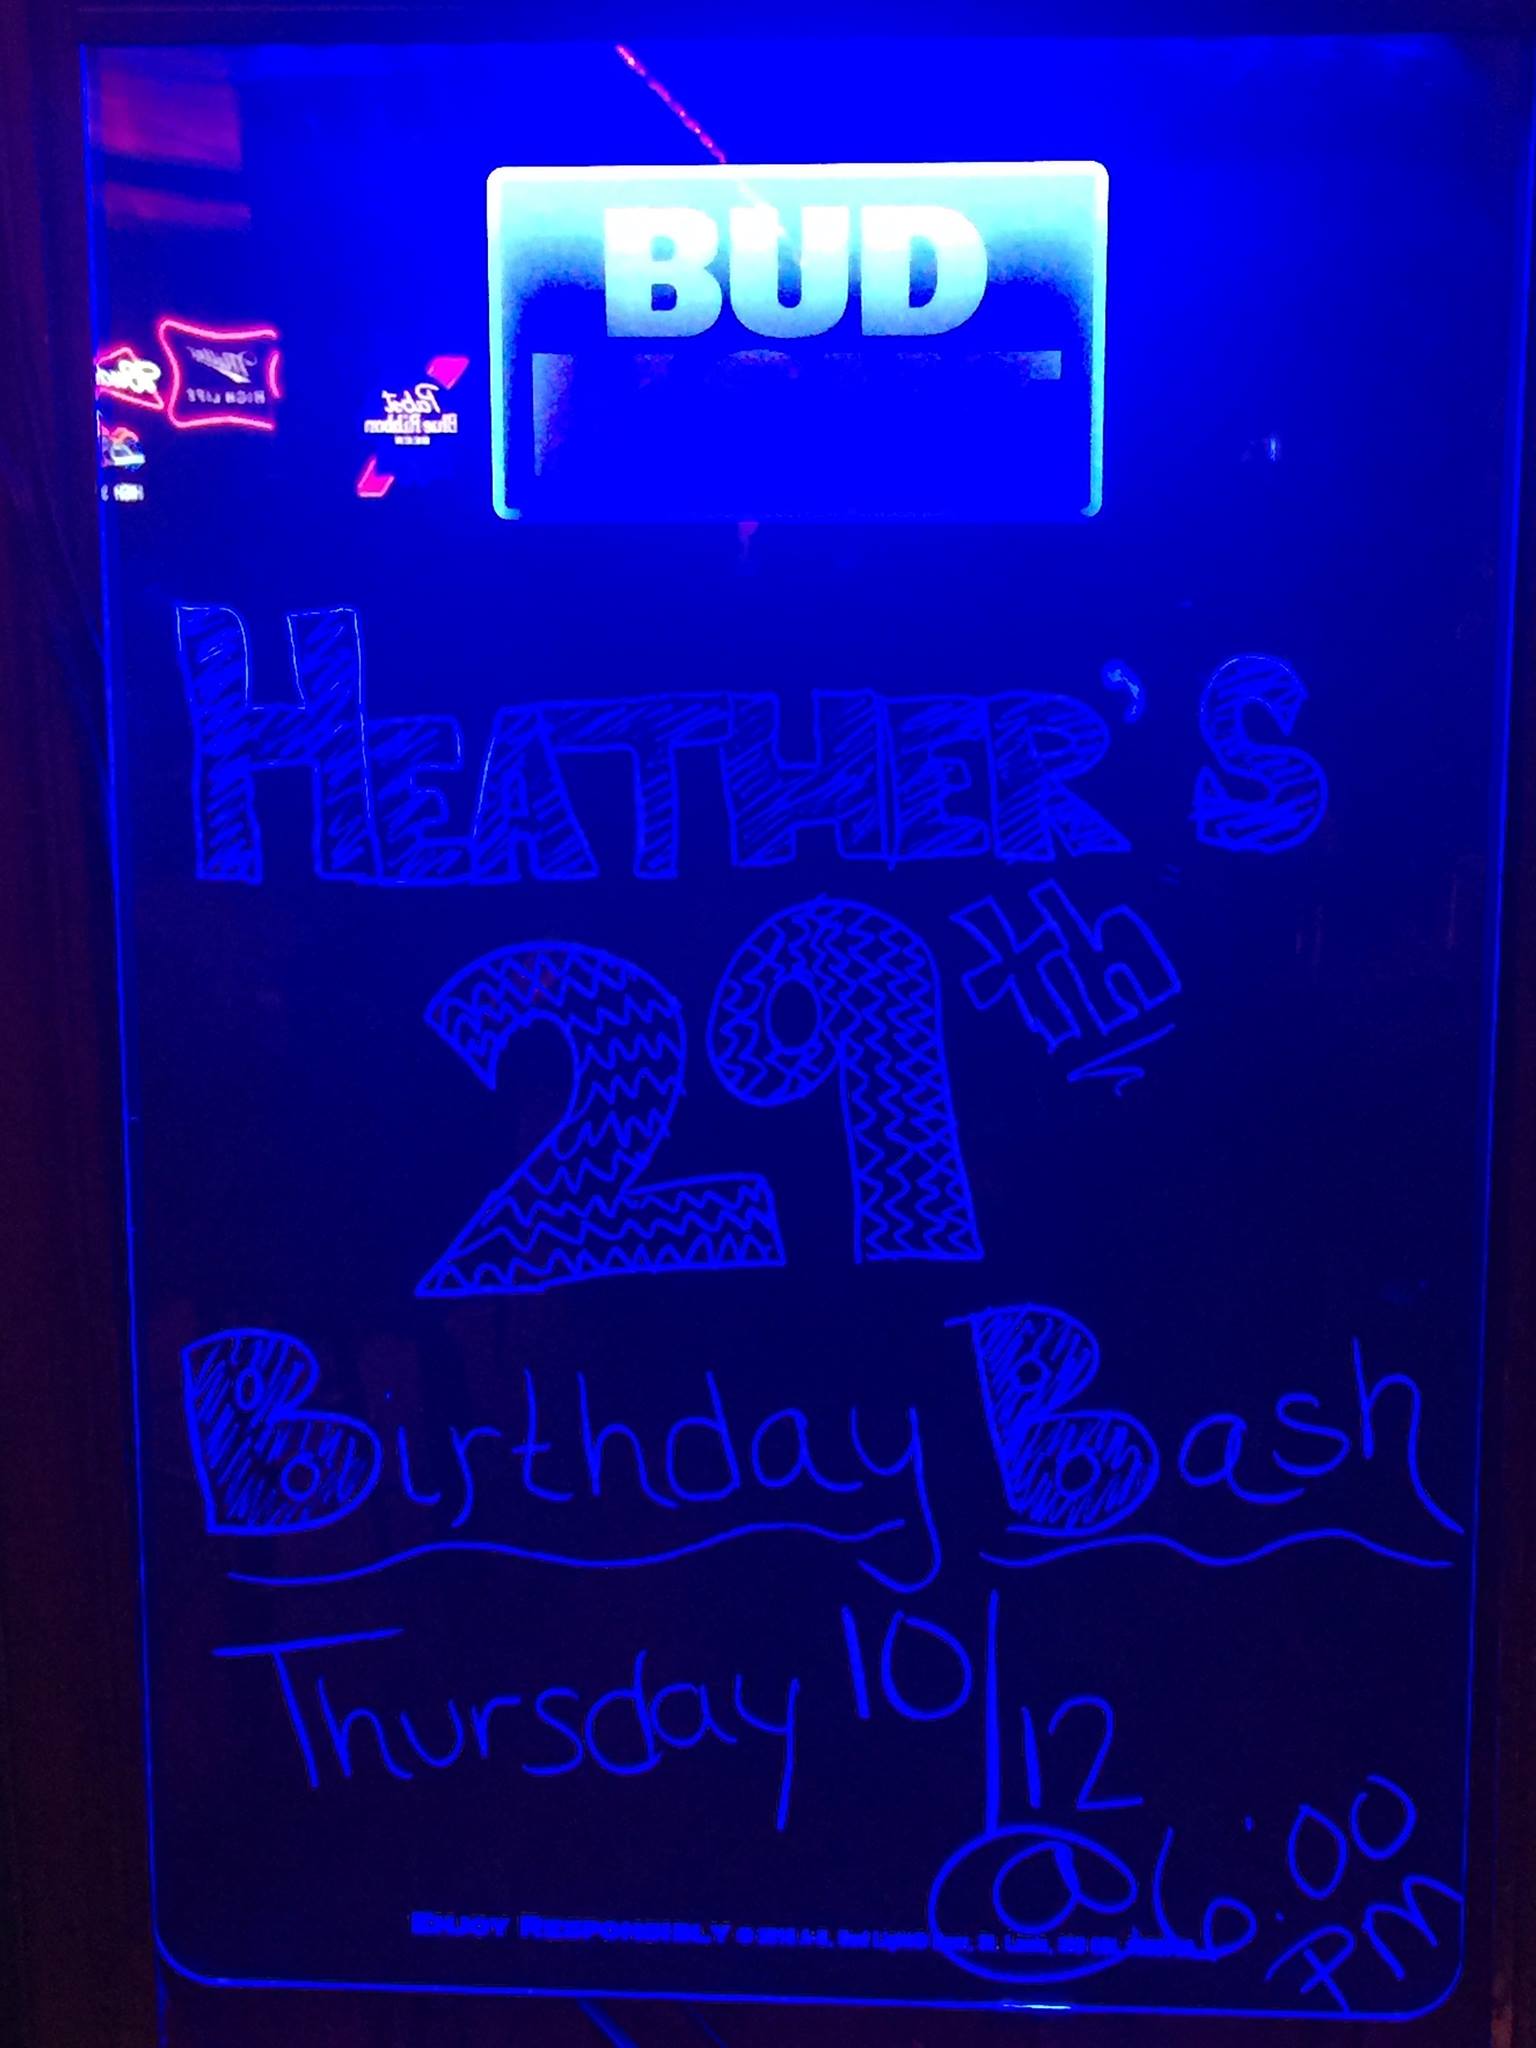 BUD
Miller
HIGH LIFE
Pabst
Blue Ribbon
BEER
HEATHER'S
29th
Birthday Bash
Thursday 10/12
@ 6:00
PM
ENJOY RESPONSIBLY